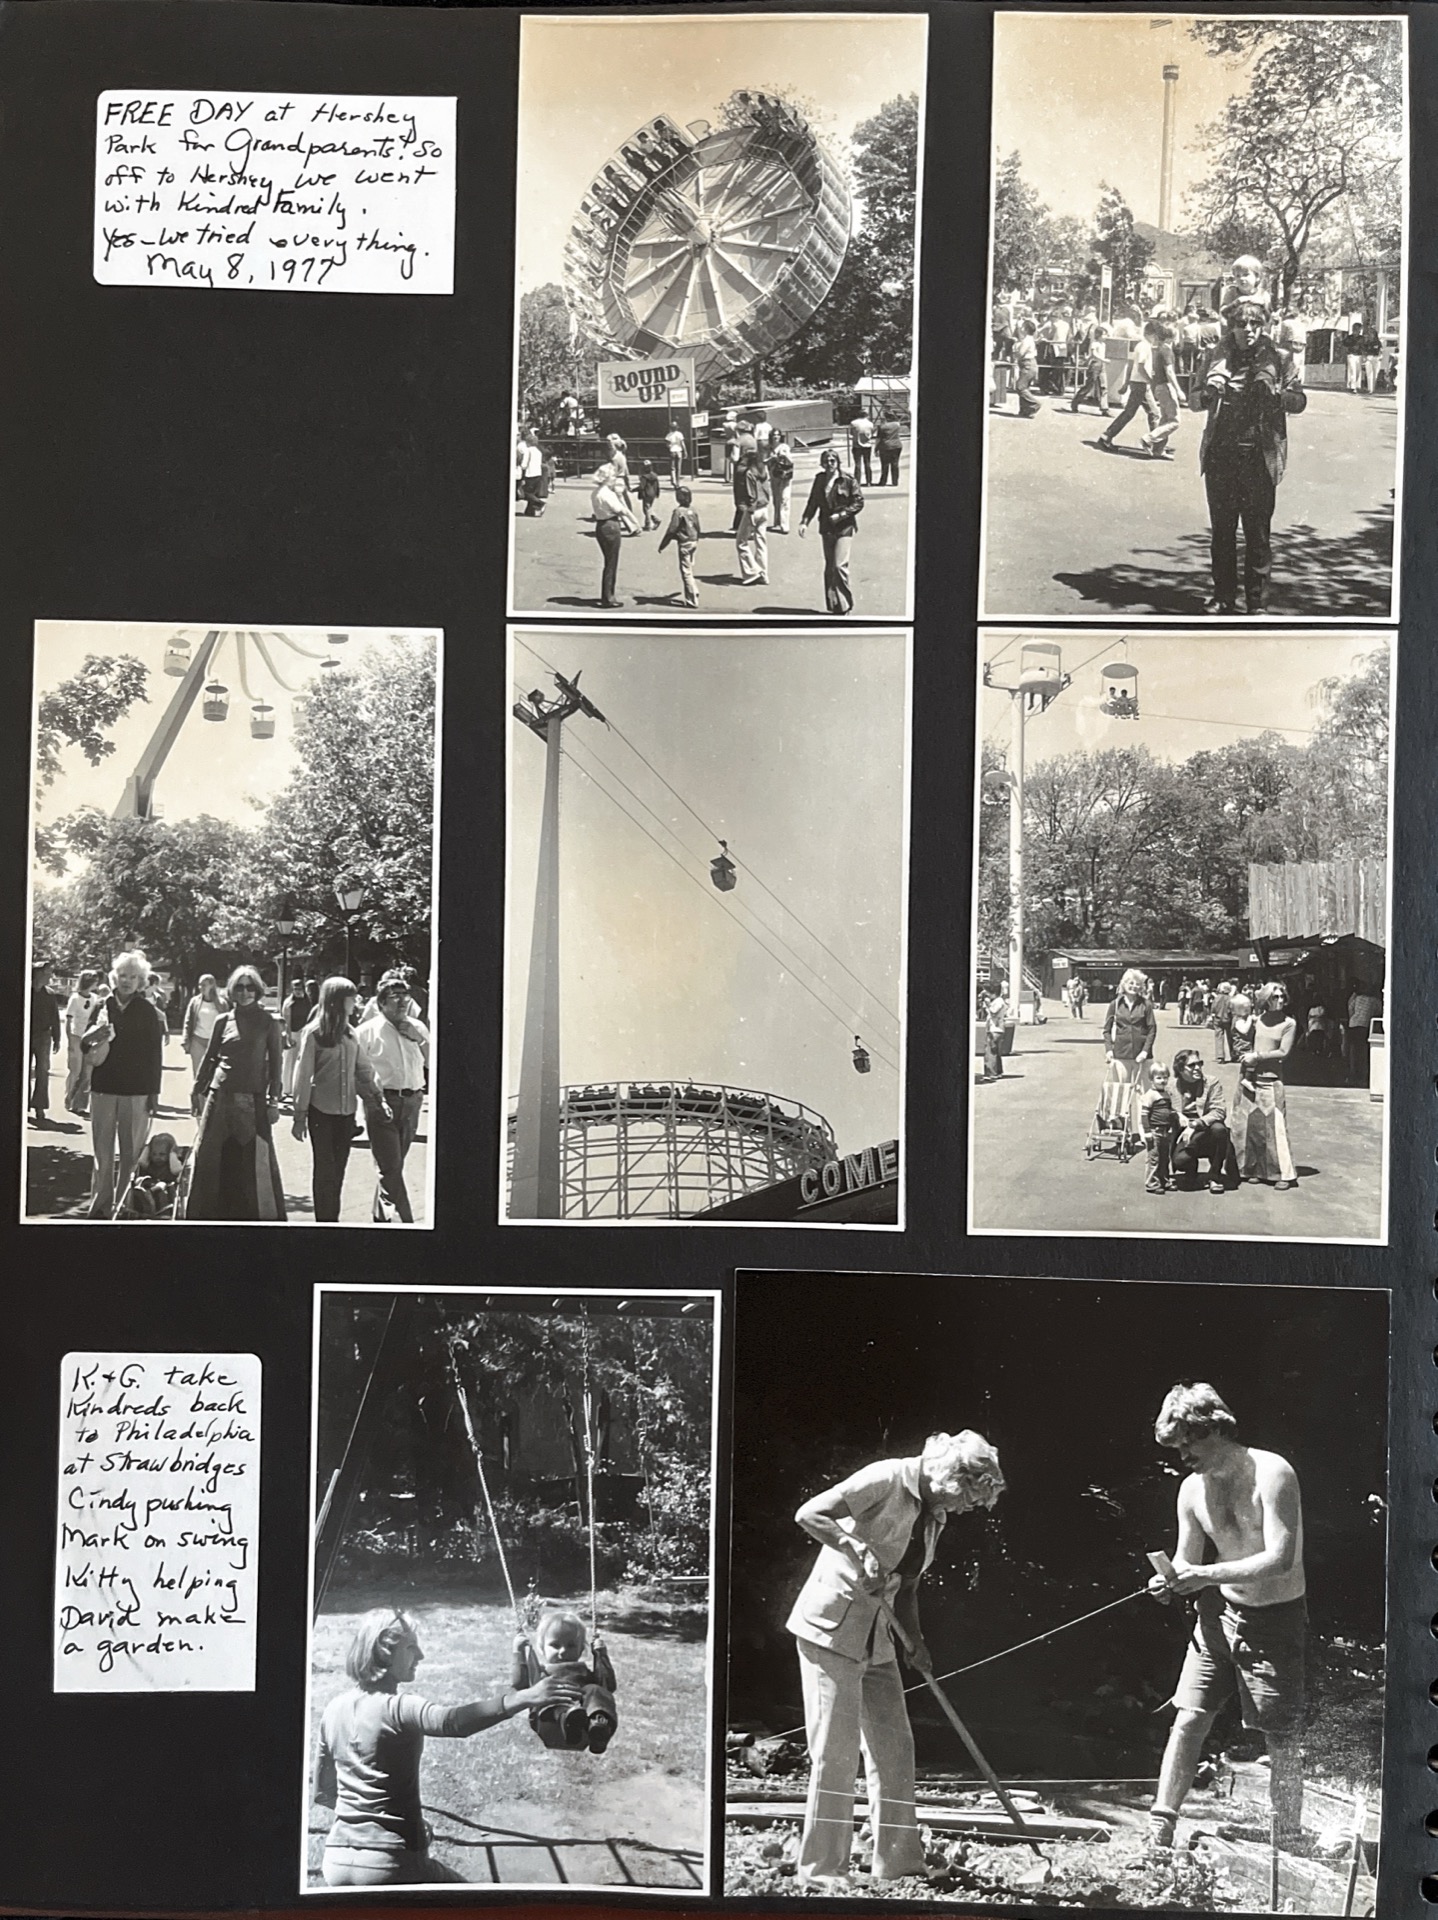 FREE DAY at Hershey
Park for Grandparents! So
off to Hershey we went
with Kindred Family.
Yes-we tried everything.
May 8, 1977
ROUND
UP
COME
K.+G. take
Kindreds back
to Philadelphia
at Strawbridges
Cindy pushing
Mark on swing
Kitty helping
David make
a garden.